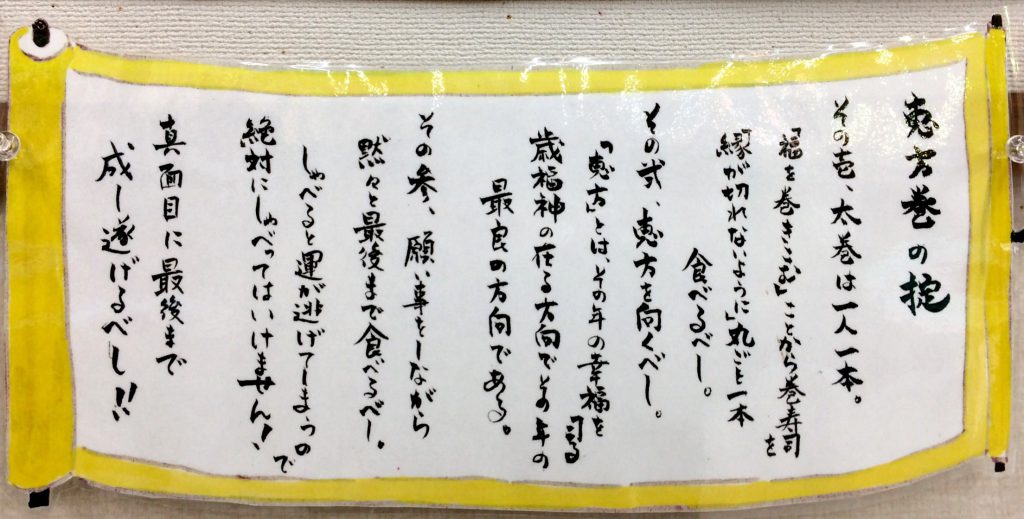 恵方巻の掟
その壱、太巻は一人一本。
「福を巻きこむ」ことから巻寿司を
「縁が切れないように」丸ごと一本
食べるべし。
その弐、恵方を向くべし。
「恵方」とは、その年の幸福を司る
歳福神の在る方向でその年の
最良の方向である。
その参、願い事をしながら
黙々と最後まで食べるべし。
しゃべると運が逃げてしまうので
絶対にしゃべってはいけません!
真面目に最後まで
成し遂げるべし!!